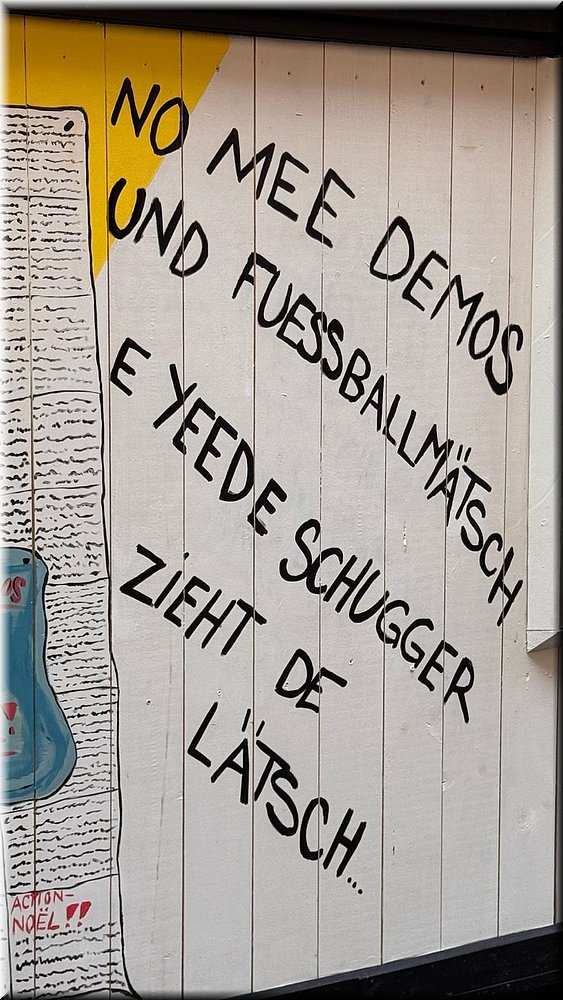 NO MEE DEMOS
UND FUESSBALLMÄTSCH
E YEEDE SCHUGGER
ZIEHT DE
LÄTSCH...
ACTION-
NOËL!!